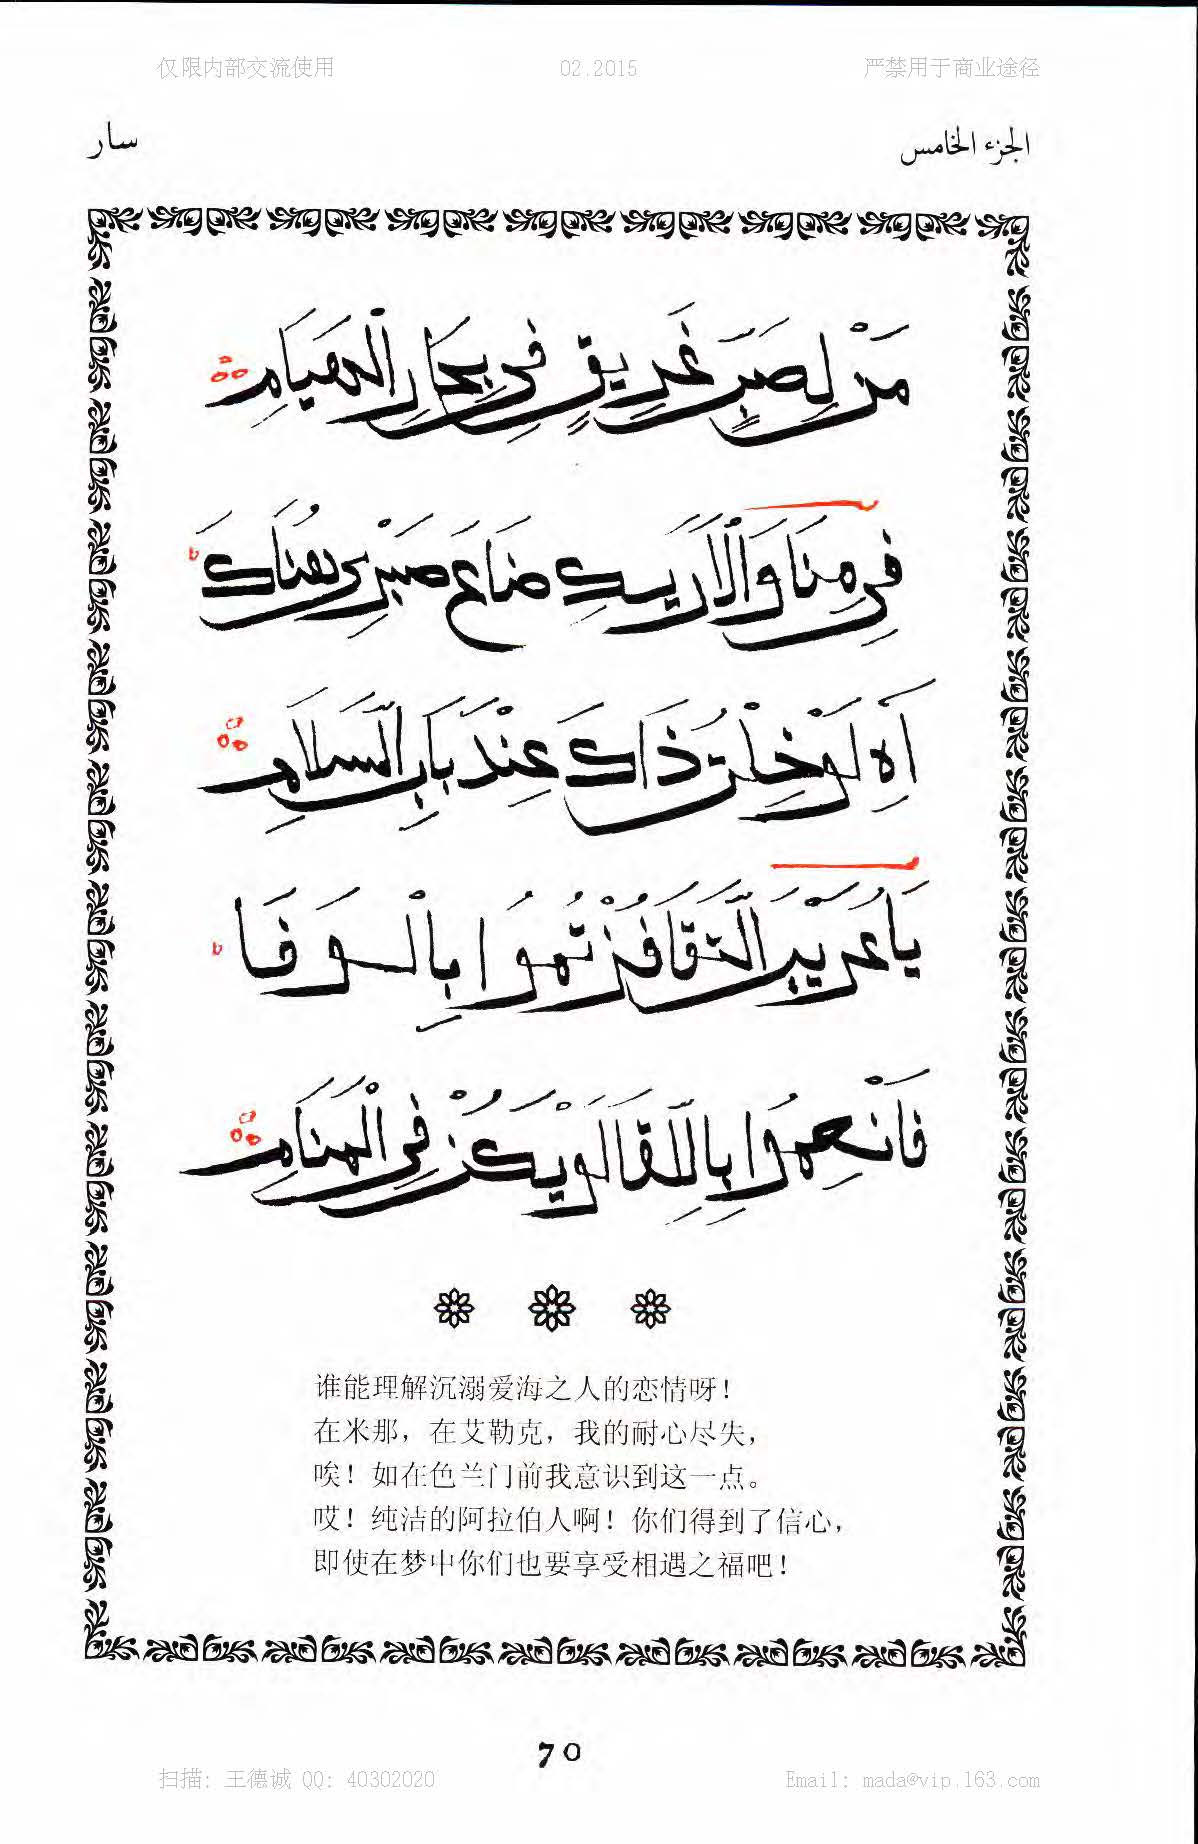 仅限内部交流使用 02.2015 严禁用于商业途径
الجزء الخامس سار
مَنْ لِصَبٍّ غَرِيقٍ فِي بِحَارِ الْهَيَامِ
فِي مِنَا وَالْأَرَيكِ ضَاعَ صَبْرِي هُنَاكَ
آهِ لَوْ خِلْتُ ذَاكَ عِنْدَ بَابِ السَّلَامِ
يَا عُرَيْبَ النَّقَا فُزْتُمُوا بِالْوَفَا
فَانْعِمُوا بِاللِّقَا لَوْ يَكُنْ فِي الْمَنَامِ
谁能理解沉溺爱海之人的恋情呀！
在米那，在艾勒克，我的耐心尽失，
唉！如在色兰门前我意识到这一点。
哎！纯洁的阿拉伯人啊！你们得到了信心，
即使在梦中你们也要享受相遇之福吧！
70
扫描: 王德诚 QQ: 40302020 Email: mada@vip.163.com